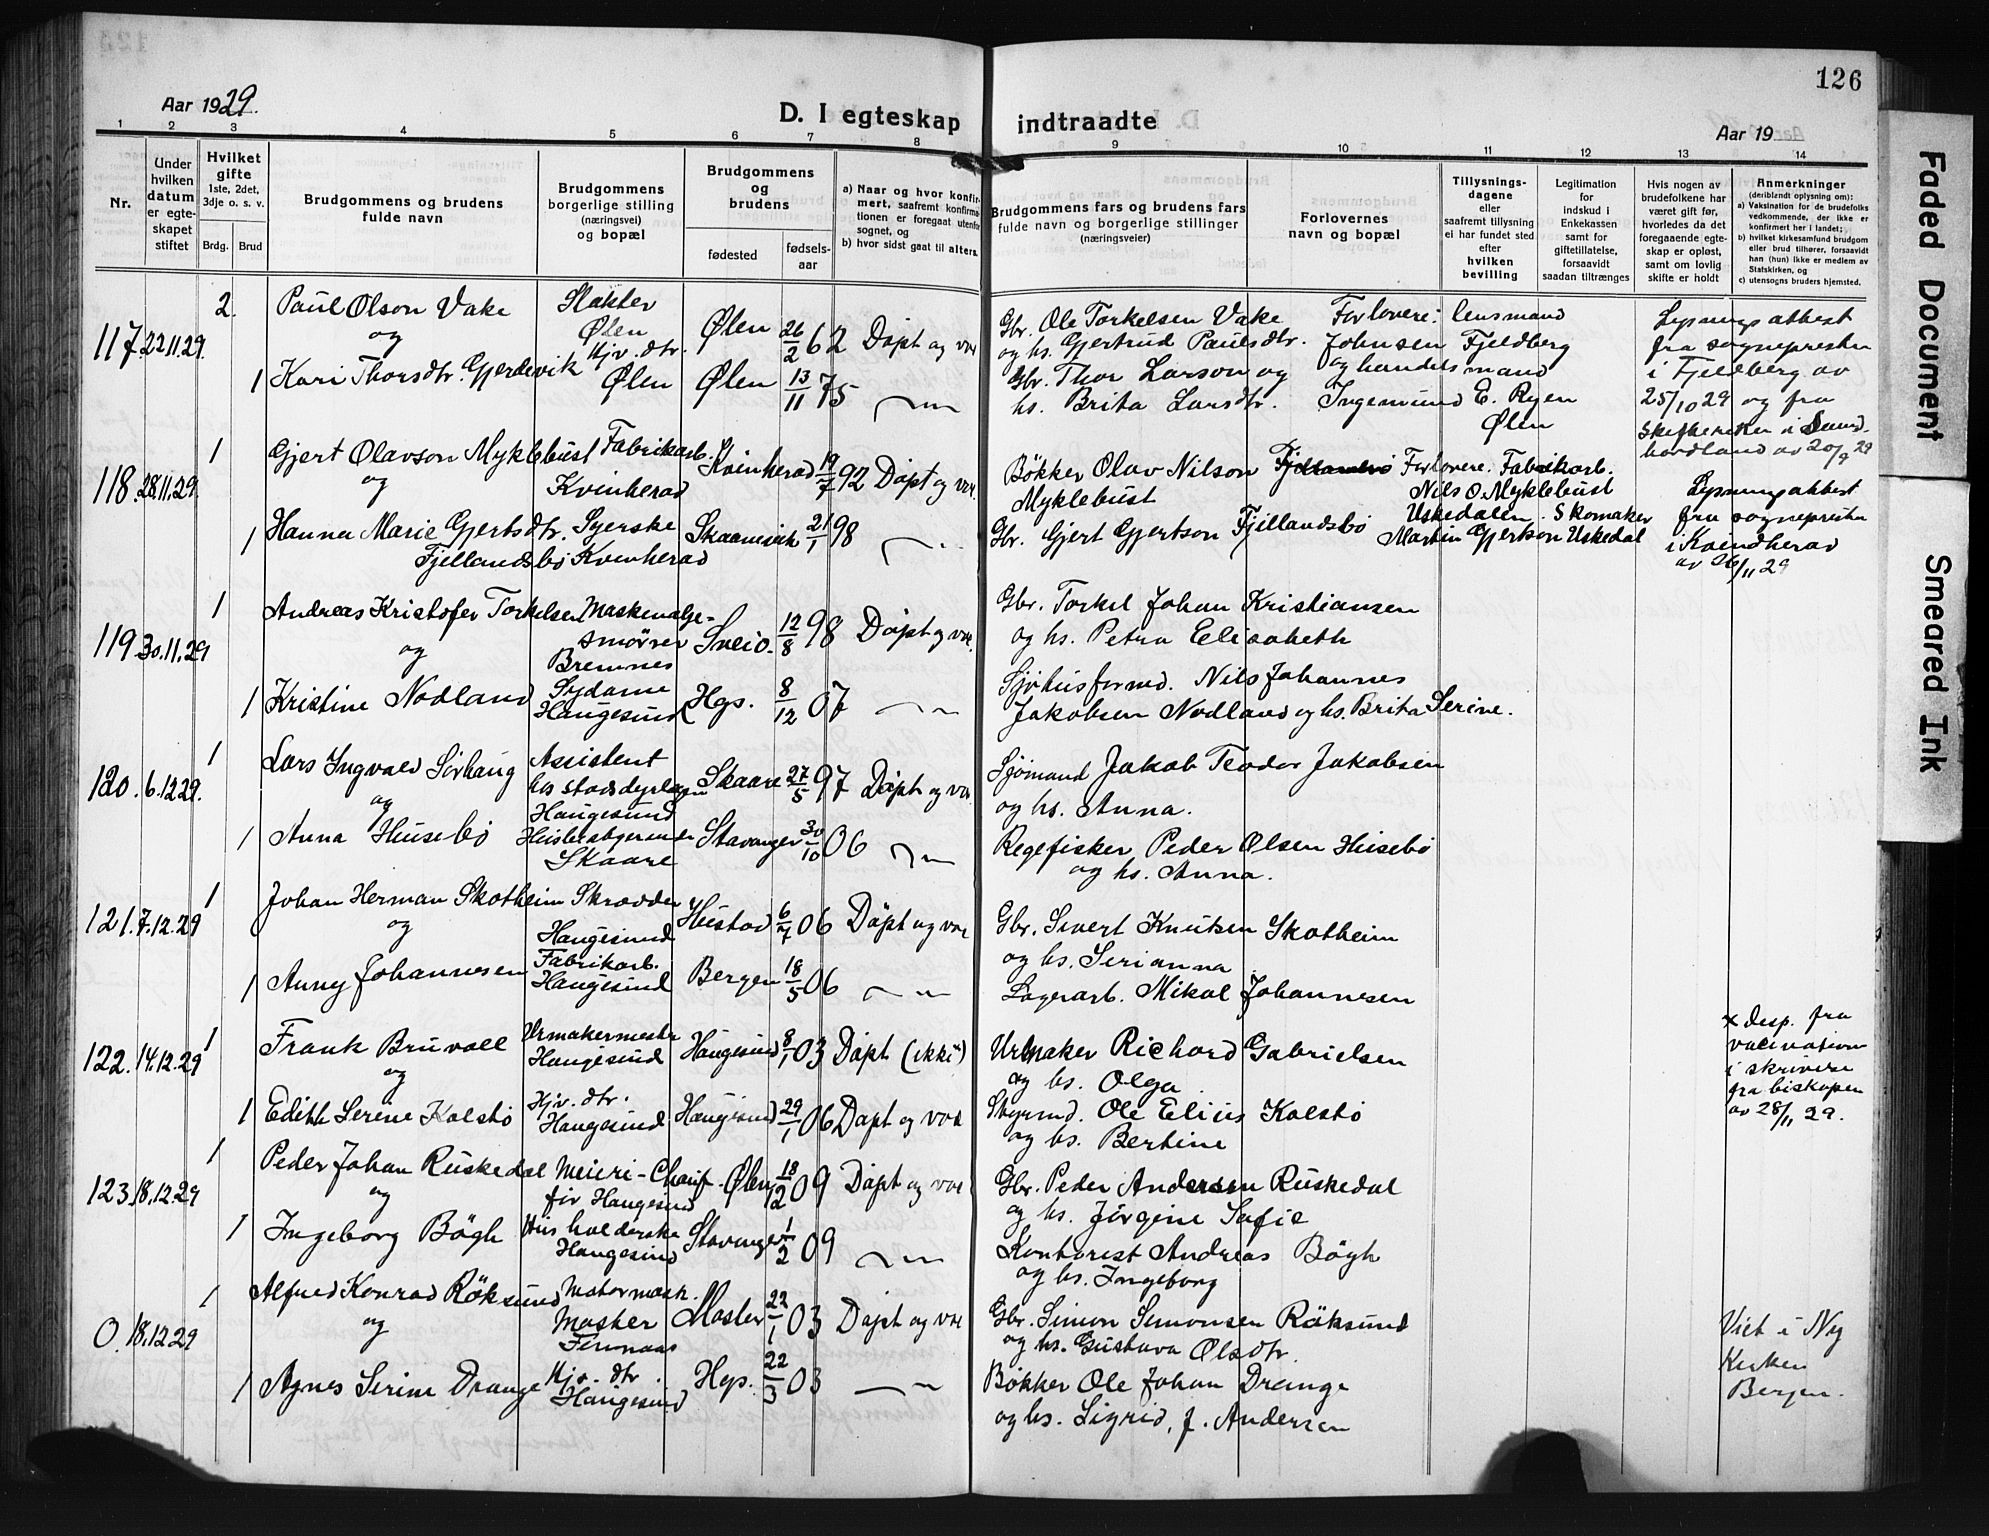 126
Aar 1929.
D. I egteskap indtraadte
Aar 19
1 2 3 4 5 6 7 8 9 10 11 12 13 14
Nr.
Under hvilken datum er egteskapet stiftet
Hvilket gifte
1ste, 2det, 3dje o. s. v.
Brdg. Brud
Brudgommens og brudens fulde navn
Brudgommens borgerlige stilling (næringsvei) og bopæl
Brudgommens og brudens
fødested
fødselsaar
a) Naar og hvor konfirmert, saafremt konfirmationen er foregaat utenfor sognet, og
b) hvor sidst gaat til alters.
Brudgommens fars og brudens fars fulde navn og borgerlige stillinger (næringsveier)
Forlovernes navn og bopæl
Tillysningsdagene eller saafremt tillysning ei har fundet sted efter hvilken bevilling
Legitimation for indskud i Enkekassen samt for giftetillatelse, forsaavidt saadan tiltrænges
Hvis nogen av brudefolkene har været gift før, hvorledes da det foregaaende egteskap er opløst, samt om lovlig skifte er holdt
Anmerkninger
(deriblendt oplysning om):
a) Vaksination for de brudefolks vedkommende, der ikke er konfirmert her i landet;
b) hvilket kirkesamfund brudgom eller brud tilhører, forsaavidt han (hun) ikke er medlem av Statskirken, og
c) utensogns bruders hjemsted.
117. 22.11.29.
2. Paul Olson Vake
og
1 Kari Thorsdtr. Gjerdevik
Slakter
Ølen
Hjv. dtr.
Ølen
Ølen 26/2 62 Døpt og vac
Ølen 13/11 75 —"—
Gbr. Ole Torkelsen Vake
og hs. Gjertrud Paulsdtr.
Gbr. Thor Larson og
hs. Brita Larsdtr.
Forlovere: lensmand
Johnsen Fjeldberg
og handelsmand
Ingemund E. Ryen
Ølen
Lysningsattest
fra sognepresten
i Fjeldberg av
25/10 29 og fra
skifteretten i Sund-
hordland av 20/9 29
118 28.11.29.
1 Gjert Olavson Myklebust
og
1 Hanna Marie Gjertsdtr.
Fjellandsbø
Fabrikarb.
Kvinherad
Syerske
Kvinherad
Kvinherad 19/7 92 Døpt og vac.
Skaanevik 21/1 98 —"—
Bøkker Olav Nilson
Myklebust
Gbr. Gjert Gjertson Fjellandsbø
Forlovere: Fabrikarb.
Nils O. Myklebust
Uskedalen. Skomaker
Martin Gjertson Uskedal
Lysningsattest
fra sognepresten
i Kvindherad
av 26/11 29
119 30.11.29
1 Andreas Kristofer Torkelsen
og
1 Kristine Nodland
smører
Bremnes
Sydame
Haugesund
Sveio. 12/8 98 Døpt og vac.
Hgs. 8/12 07 —"—
Gbr. Torkel Johan Kristiansen
og hs. Petra Elisabeth
Sjøhusformd. Nils Johannes
Jakobsen Nodland og hs. Brita Serine.
120. 6.12.29.
1 Lars Ingvald Sørhaug
og
1 Anna Husebø
Assistent
hos stadsdyrlægen
Haugesund
Husbestyrerinde
Skaare
Skaare 27/5 97 Døpt og vac
Stavanger 30/10 06 —"—
Sjømand Jakob Teodor Jakobsen
og hs. Anna.
Regefisker Peder Olsen Husebø
og hs. Anna.
121. 7.12.29
1 Johan Herman Skotheim
og
1 Anny Johannesen
Skrædder
Haugesund
Fabrikarb.
Haugesund
Hustad 6/7 06 Døpt og vac
Bergen 18/5 06 —"—
Gbr. Sivert Knutsen Skotheim
og hs. Serianna
Lagerarb. Mikal Johannesen
122. 14.12.29
1 Frank Bruvoll
og
1 Edith Serine Kolstø
Urmakermester
Haugesund
Hjv. dtr.
Haugesund
Haugesund 8/1 03 Døpt (ikki)
Haugesund 29/1 06 Døpt og vac
Urmaker Richard Gabrielsen
og hs. Olga
Styrmd. Ole Elius Kolstø
og hs. Bertine
x desp. fra
vacination
i skrivelse
fra biskopen
av 28/11 29.
123. 18.12.29
1 Peder Johan Ruskedal
og
1 Ingeborg Bøgh
Meieri-Chauf-
før Haugesund
Husholderske
Haugesund
Ølen 18/12 09 Døpt og vac
Stavanger 1/2 09 —"—
Gbr. Peder Andersen Ruskedal
og hs. Jørgine Sofie
Kontorist Andreas Bøgh
og hs. Ingeborg
0. 18.12.29
1 Alfred Konrad Røksund
og
1 Agnes Serine Drange
Motormask.
Moster
Hjv. dtr.
Haugesund
Moster 22/1 03 Døpt og vac
Hgs. 22/3 03 —"—
Gbr. Simon Simonsen Røksund
og hs. Gustava Olsdtr.
Bøkker Ole Johan Drange
og hs. Sigrid, f. Andersen
Viet i Ny
Kirken
Bergen.
Faded Document
Smeared Ink